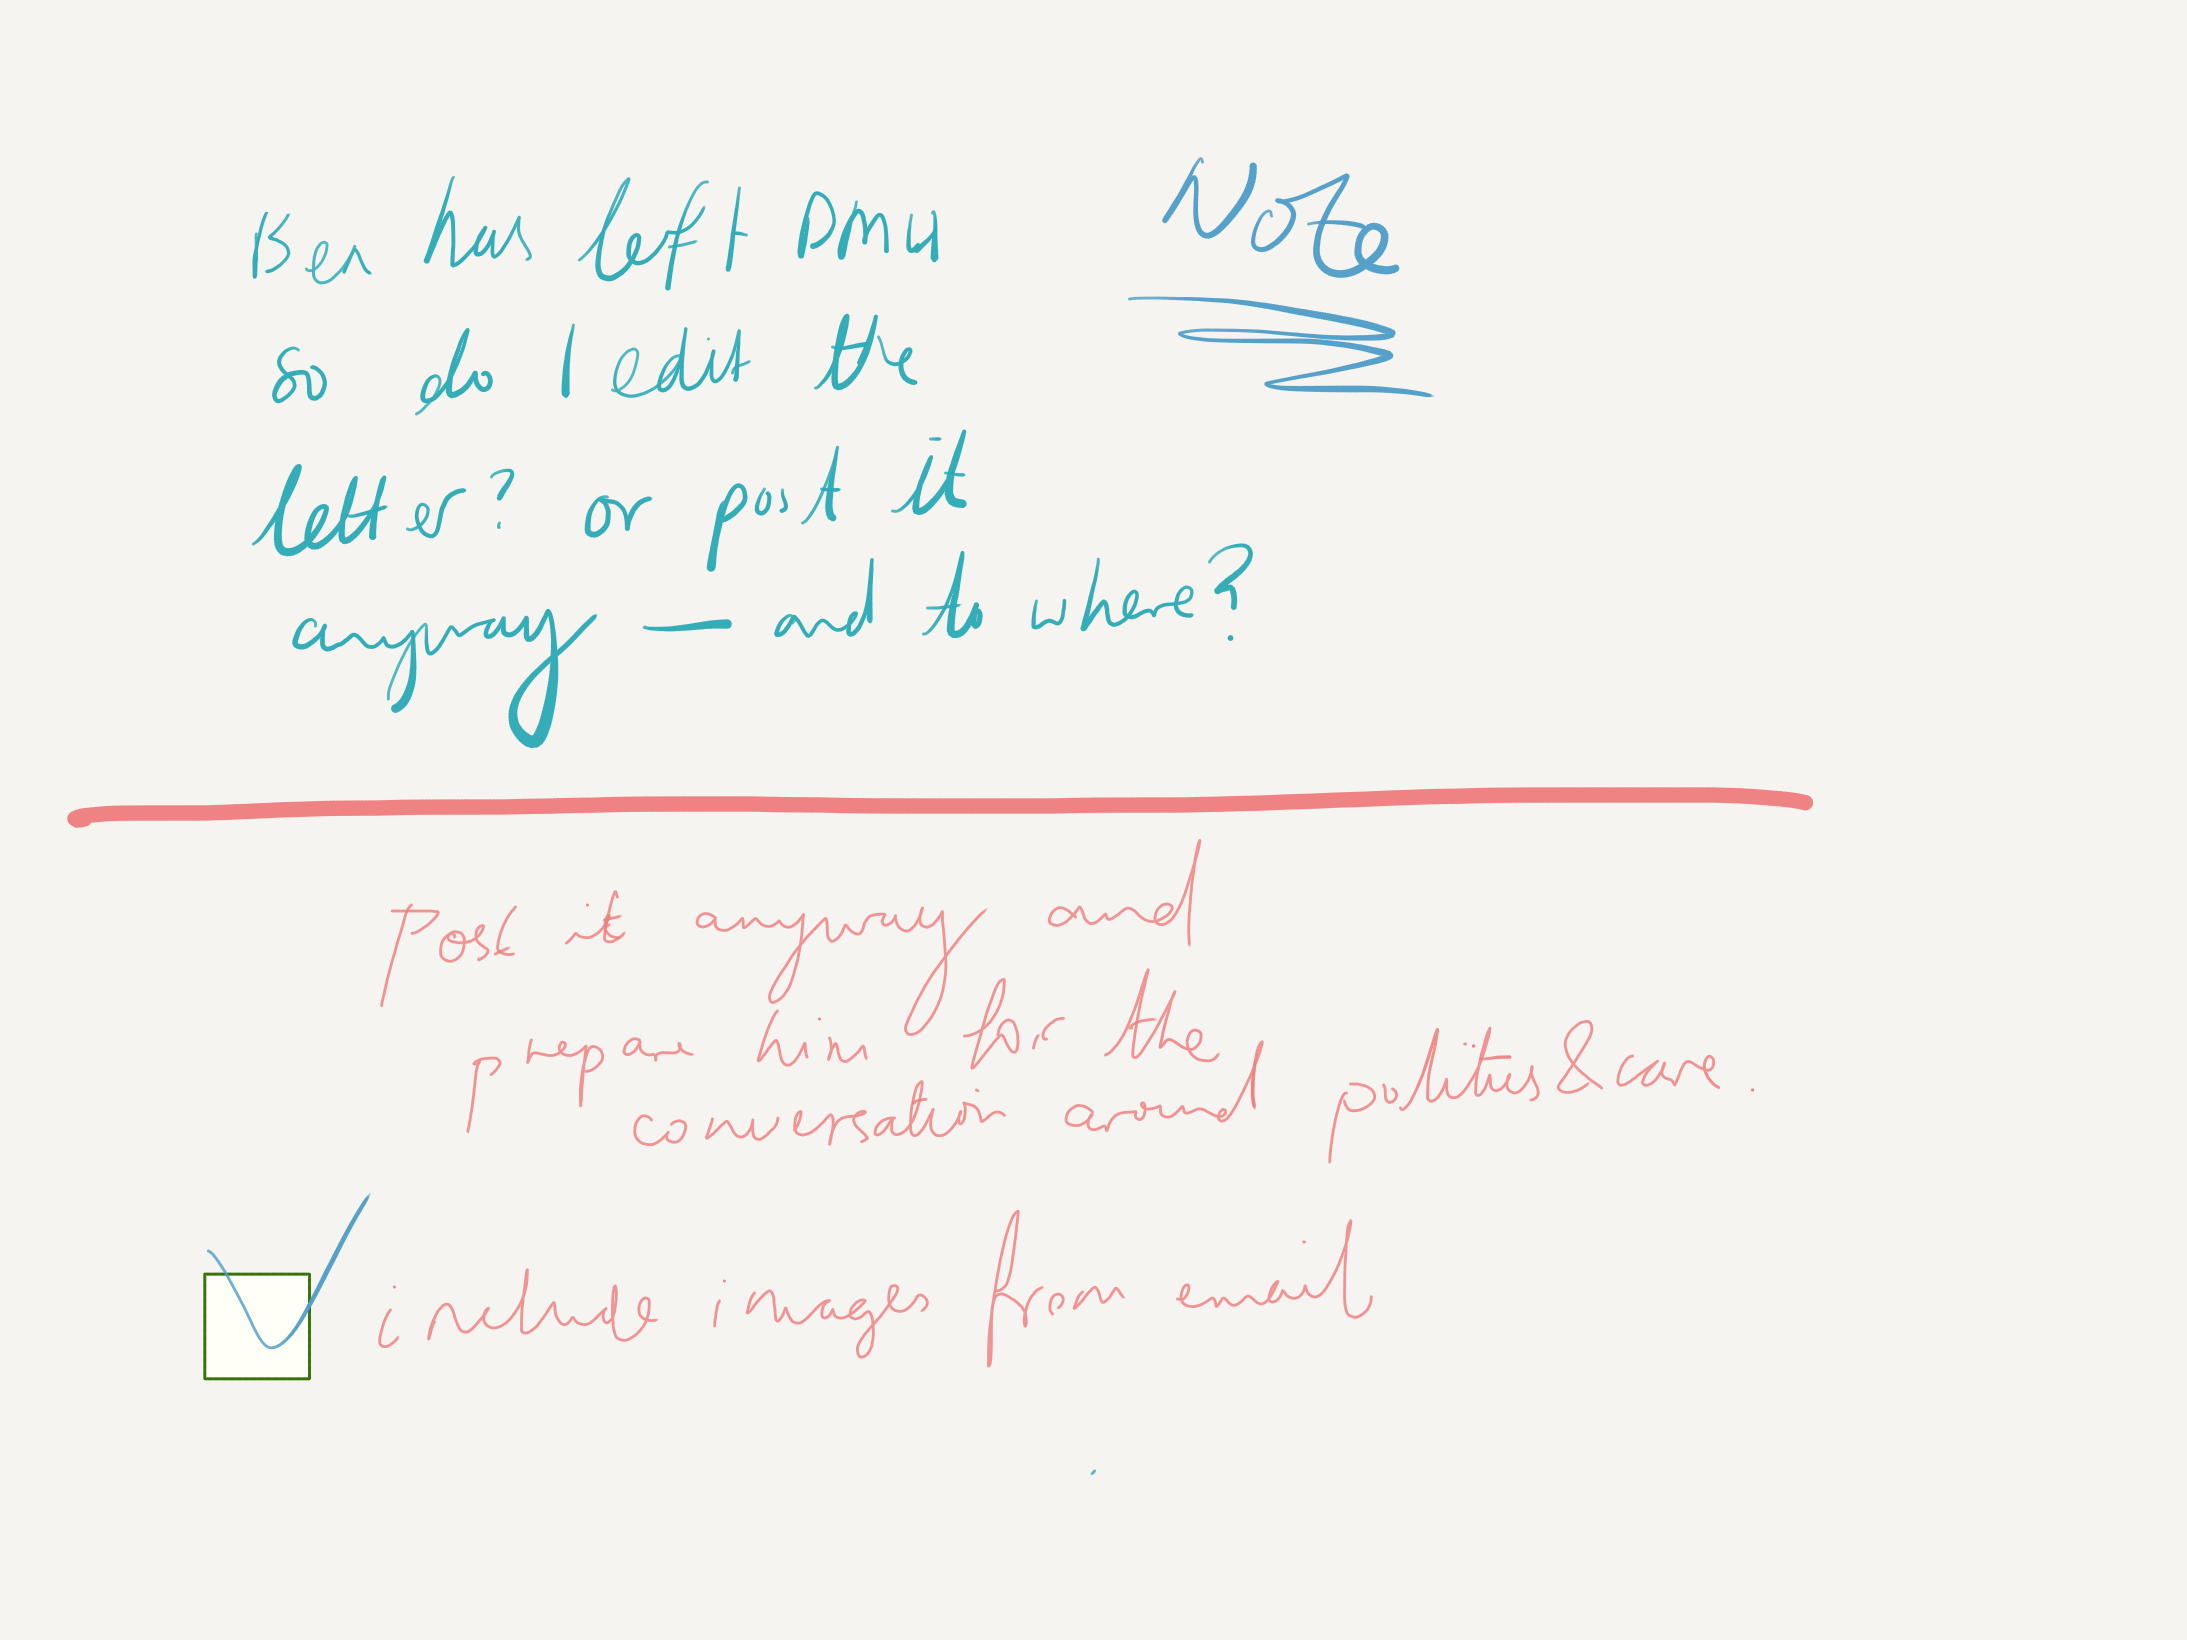 Note
Ben has left DMU
so do I edit the
letter? or post it
anyway — and to where?
Post it anyway and
prepare him for the
conversation around politics & care.
include images from email